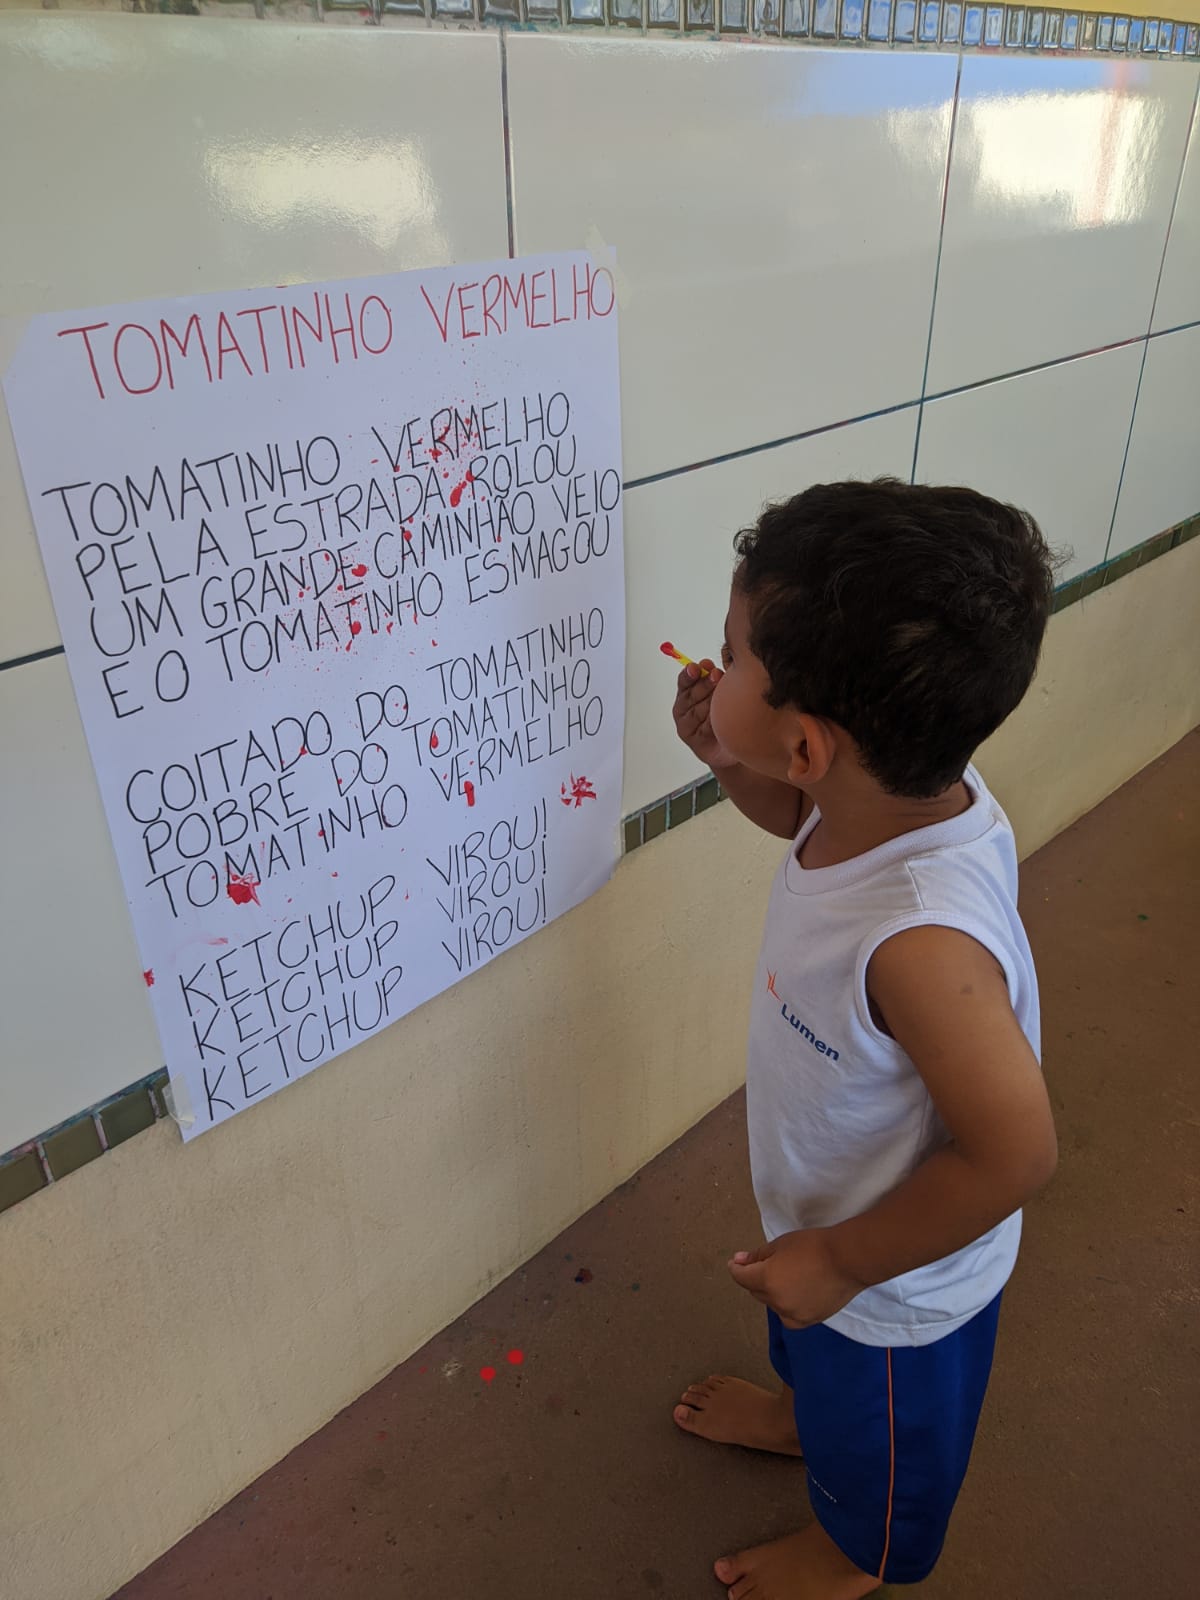 TOMATINHO VERMELHO
TOMATINHO VERMELHO
PELA ESTRADA ROLOU
UM GRANDE CAMINHÃO VEIO
E O TOMATINHO ESMAGOU
COITADO DO TOMATINHO
POBRE DO TOMATINHO
TOMATINHO VERMELHO
KETCHUP VIROU!
KETCHUP VIROU!
KETCHUP VIROU!
Lumen